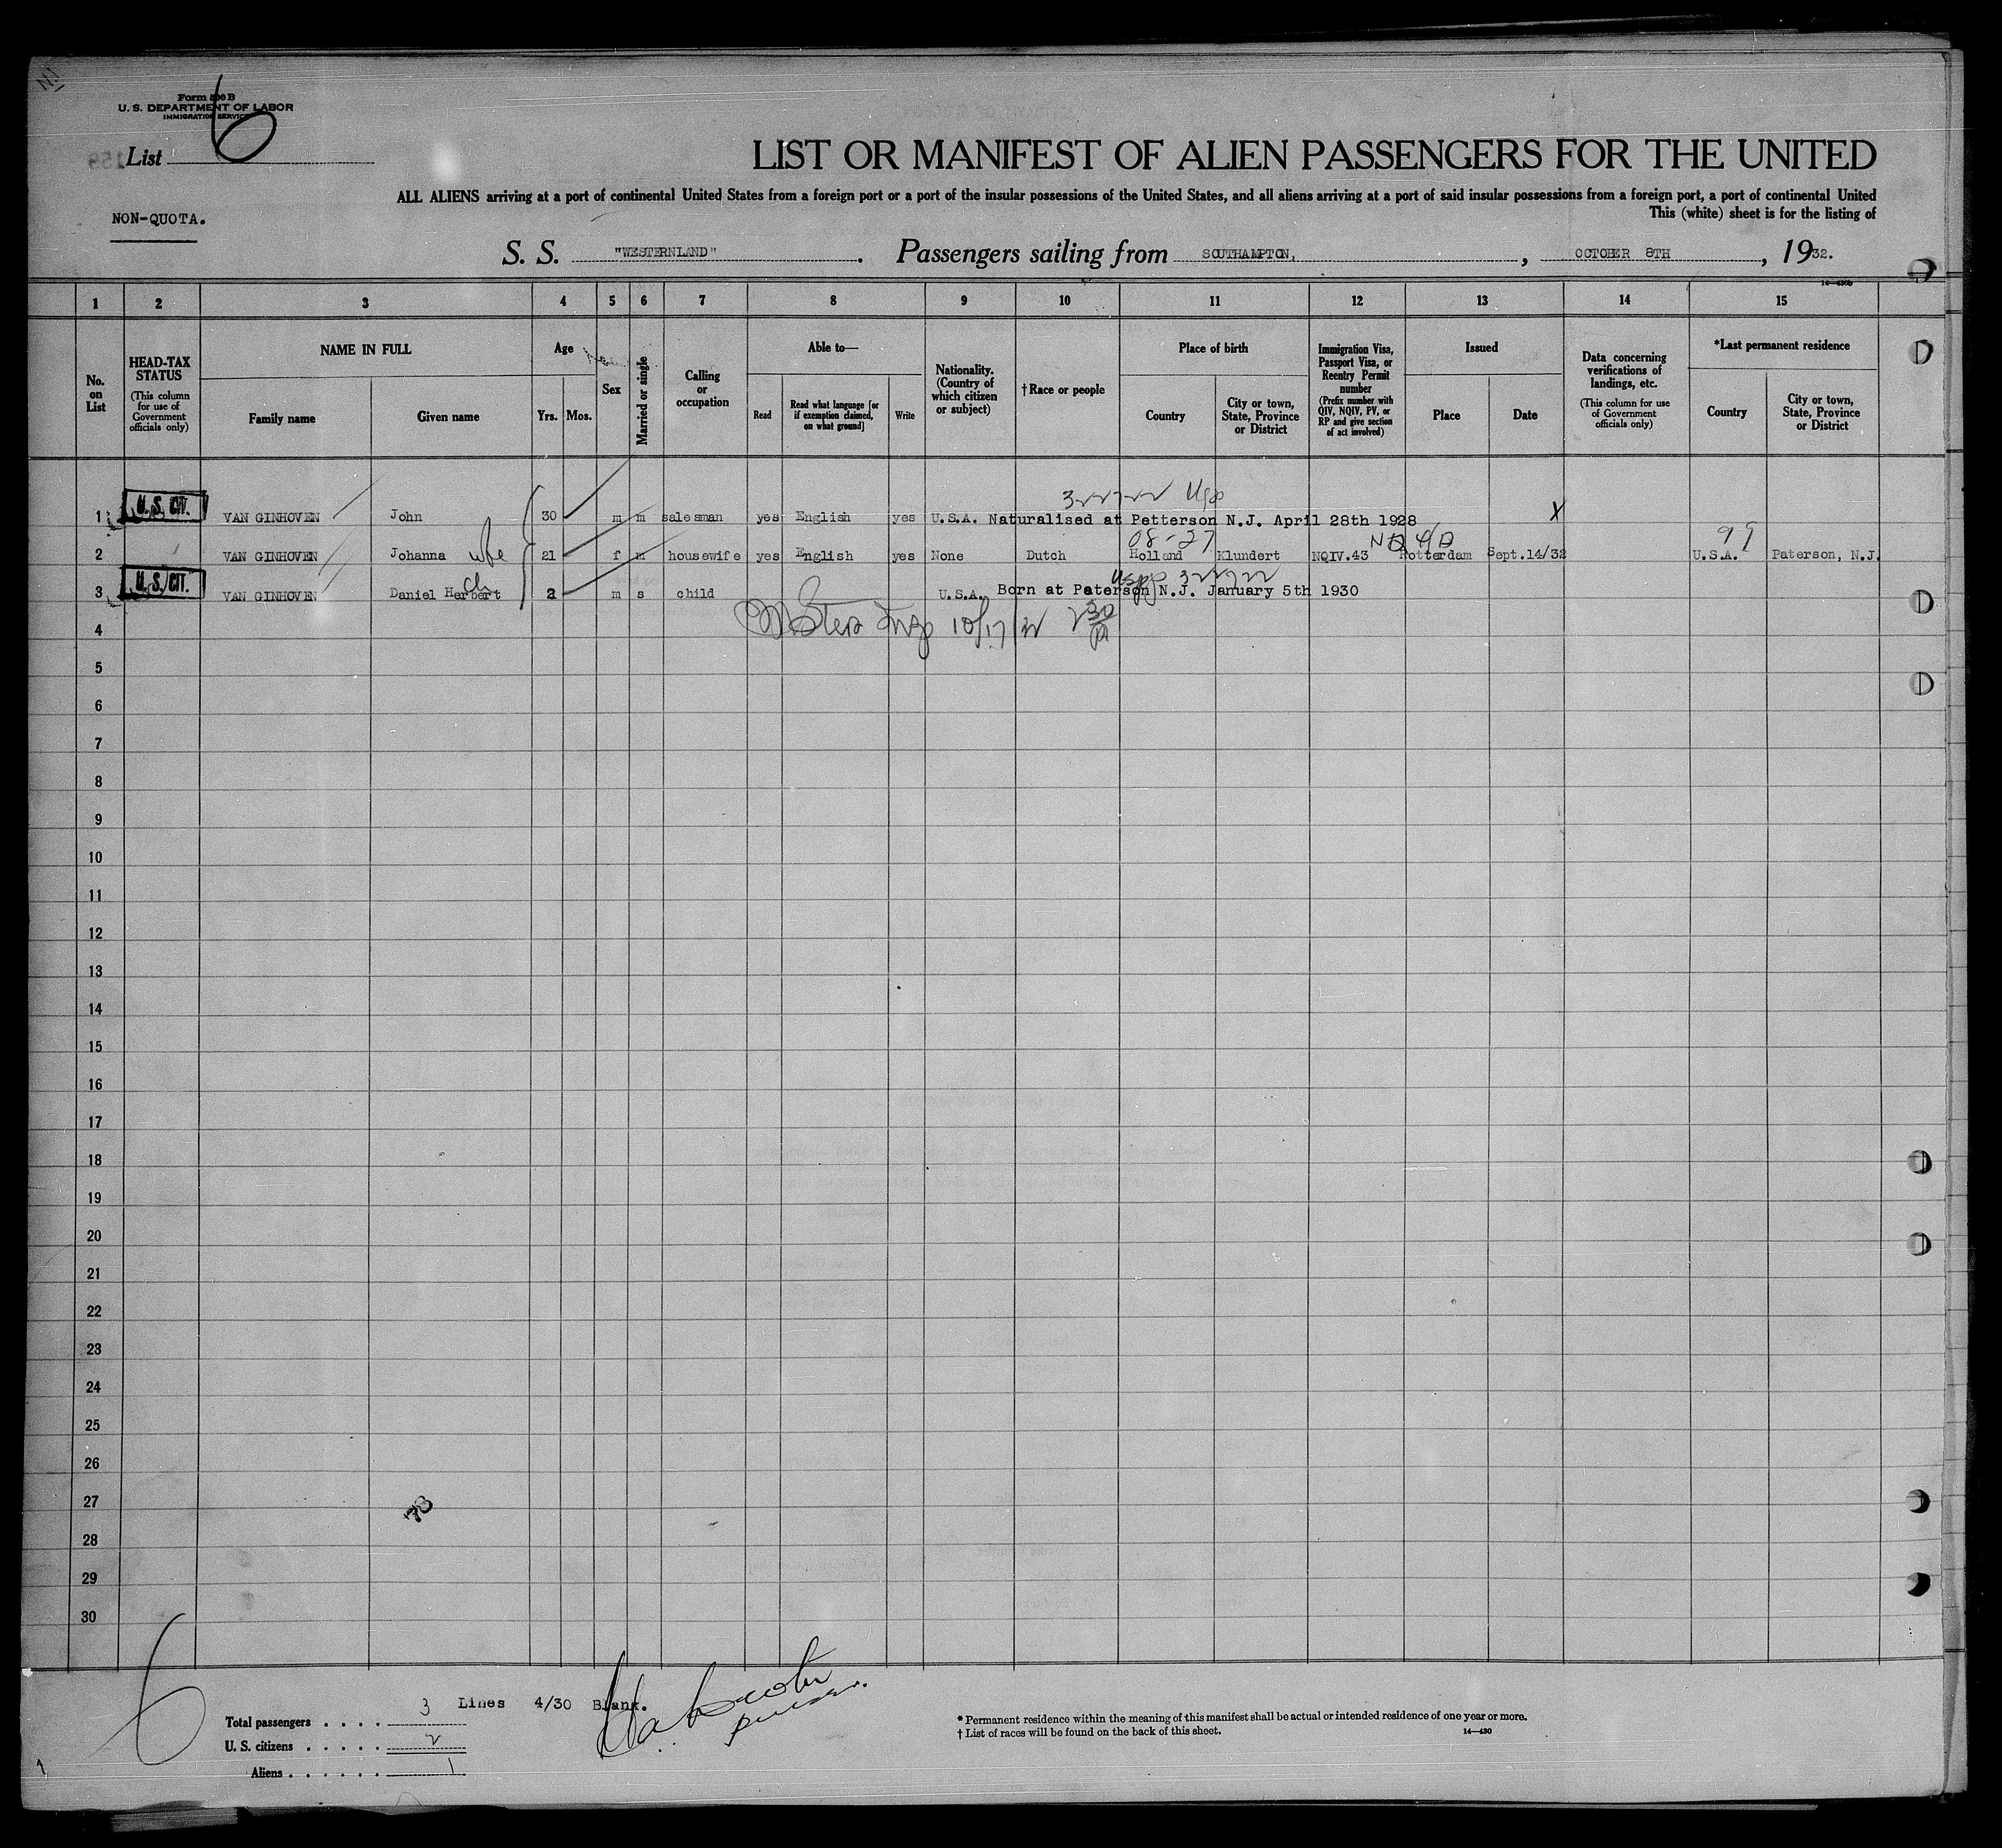 Form 500 B
U. S. DEPARTMENT OF LABOR
IMMIGRATION SERVICE
List 6
NON-QUOTA.
LIST OR MANIFEST OF ALIEN PASSENGERS FOR THE UNITED
ALL ALIENS arriving at a port of continental United States from a foreign port or a port of the insular possessions of the United States, and all aliens arriving at a port of said insular possessions from a foreign port, a port of continental United
This (white) sheet is for the listing of
S. S. "WESTERNLAND". Passengers sailing from SOUTHAMPTON, , OCTOBER 8TH , 1932.
1 2 3 4 5 6 7 8 9 10 11 12 13 14 15
No. on List
HEAD-TAX STATUS (This column for use of Government officials only)
NAME IN FULL
Family name
Given name
Age
Yrs. Mos.
Sex
Married or single
Calling or occupation
Able to—
Read
Read what language [or if exemption claimed, on what ground]
Write
Nationality. (Country of which citizen or subject)
† Race or people
Place of birth
Country
City or town, State, Province or District
Immigration Visa, Passport Visa, or Reentry Permit number (Prefix number with QIV, NQIV, PV, or RP and give section of act involved)
Issued
Place
Date
Data concerning verifications of landings, etc. (This column for use of Government officials only)
*Last permanent residence
Country
City or town, State, Province or District
1 U. S. CIT. VAN GINHOVEN John 30 m m salesman yes English yes U.S.A. Naturalised at Petterson N.J. April 28th 1928 X
08-27 99
2 VAN GINHOVEN Johanna wife 21 f m housewife yes English yes None Dutch Holland Klundert NQIV.43 Rotterdam Sept.14/32 U.S.A. Paterson, N.J.
3 U. S. CIT. VAN GINHOVEN Daniel Herbert ch 2 m s child U.S.A. Born at Paterson N.J. January 5th 1930
4
5
6
7
8
9
10
11
12
13
14
15
16
17
18
19
20
21
22
23
24
25
26
27
28
29
30
78
6
3 Lines 4/30 Blank.
Total passengers . . . .
U. S. citizens . . . . . 2
Aliens . . . . . . 1
* Permanent residence within the meaning of this manifest shall be actual or intended residence of one year or more.
† List of races will be found on the back of this sheet. 14—430